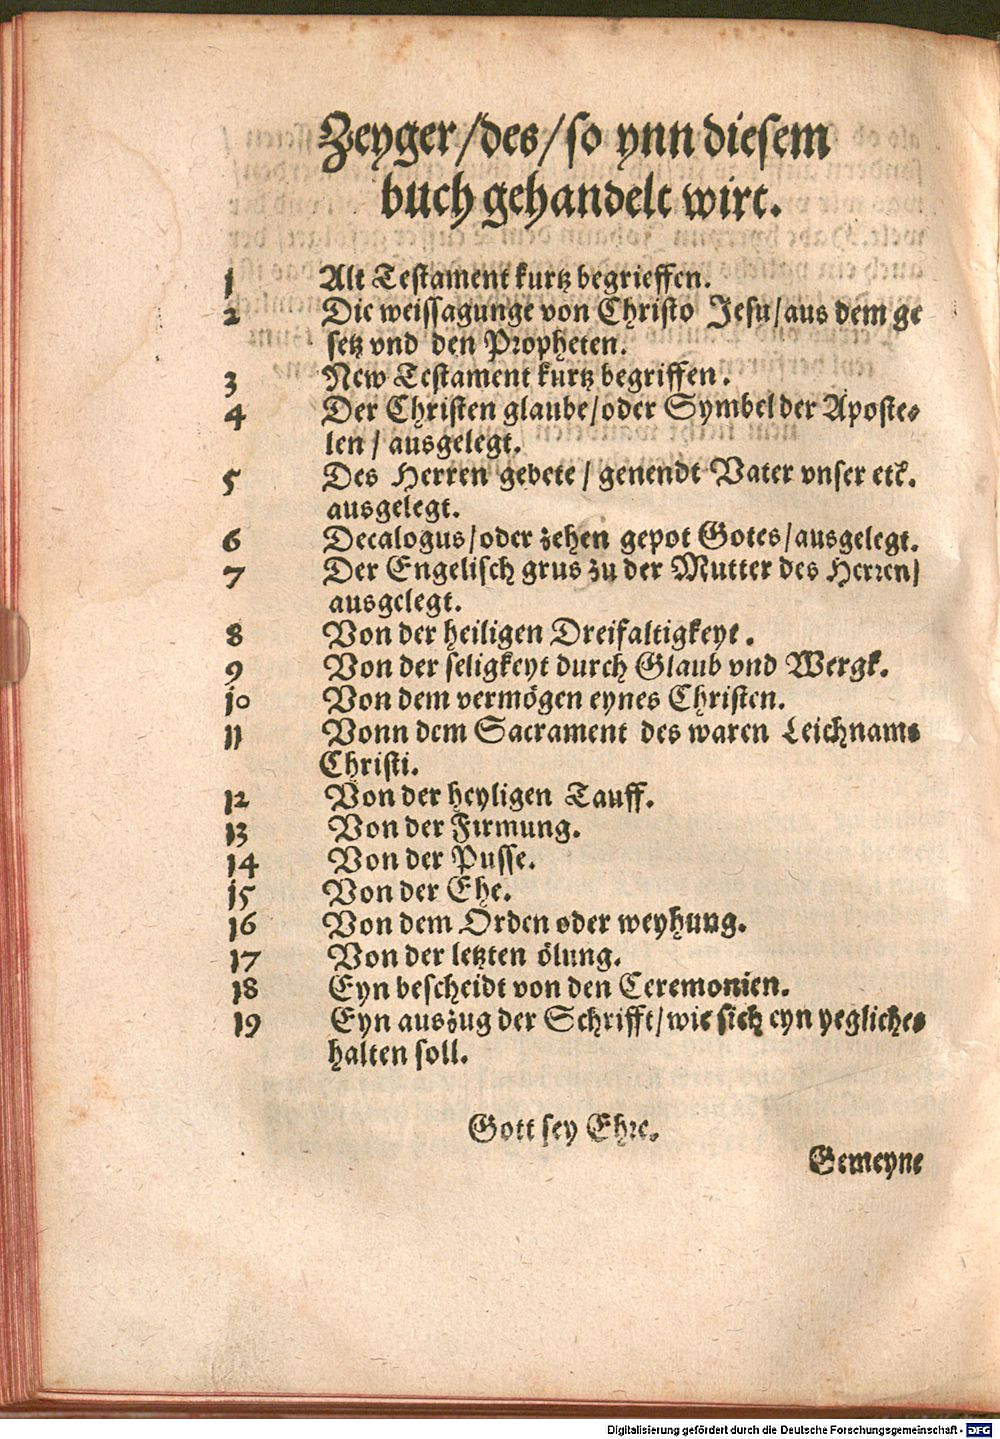 Zeyger/des/so ynn diesem
buch gehandelt wirt.
1 Alt Testament kurtz begrieffen.
2 Die weissagunge von Christo Jesu/aus dem ge
setz vnd den Propheten.
3 New Testament kurtz begriffen.
4 Der Christen glaube/oder Symbel der Aposte-
len/ausgelegt.
5 Des Herren gebete/genendt Vater vnser etc.
ausgelegt.
6 Decalogus/oder zehen gepot Gotes/ausgelegt.
7 Der Engelisch grus zu der Mutter des Herren/
ausgelegt.
8 Von der heiligen Dreifaltigkeyt.
9 Von der seligkeyt durch Glaub vnd Wergk.
10 Von dem vermögen eynes Christen.
11 Vonn dem Sacrament des waren Leichnams
Christi.
12 Von der heyligen Tauff.
13 Von der Firmung.
14 Von der Pusse.
15 Von der Ehe.
16 Von dem Orden oder weyhung.
17 Von der letzten ölung.
18 Eyn bescheidt von den Ceremonien.
19 Eyn auszug der Schrifft/wie sich eyn yegliches
halten soll.
Gott sey Ehre.
Gemeyne
Digitalisierung gefördert durch die Deutsche Forschungsgemeinschaft - DFG